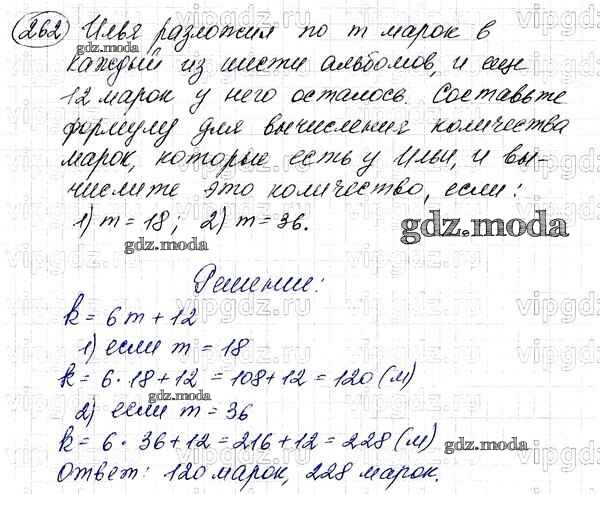 262) Илья разложил по m марок в
каждый из шести альбомов, и еще
12 марок у него осталось. Составьте
формулу для вычисления количества
марок, которые есть у Ильи, и вы-
числите это количество, если:
1) m = 18; 2) m = 36.
gdz.moda
Решение:
k = 6m + 12
1) если m = 18
k = 6 · 18 + 12 = 108 + 12 = 120 (м)
2) если m = 36
k = 6 · 36 + 12 = 216 + 12 = 228 (м)
Ответ: 120 марок, 228 марок.